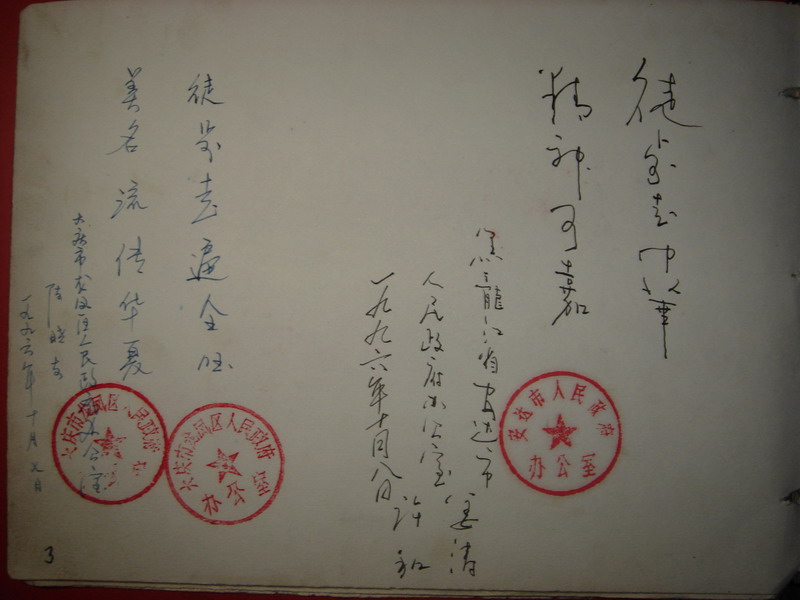 徒步走中华
精神可嘉
黑龍江省安达市
人民政府办公室 姜涛
一九九六年十月八日 许
安达市人民政府
办公室
徒步走遍全国
美名流传华夏
大庆市龙凤区人民政府办公室
一九九六年十月九日
大庆市龙凤区人民政府
办公室
大庆市龙凤区人民政府
3